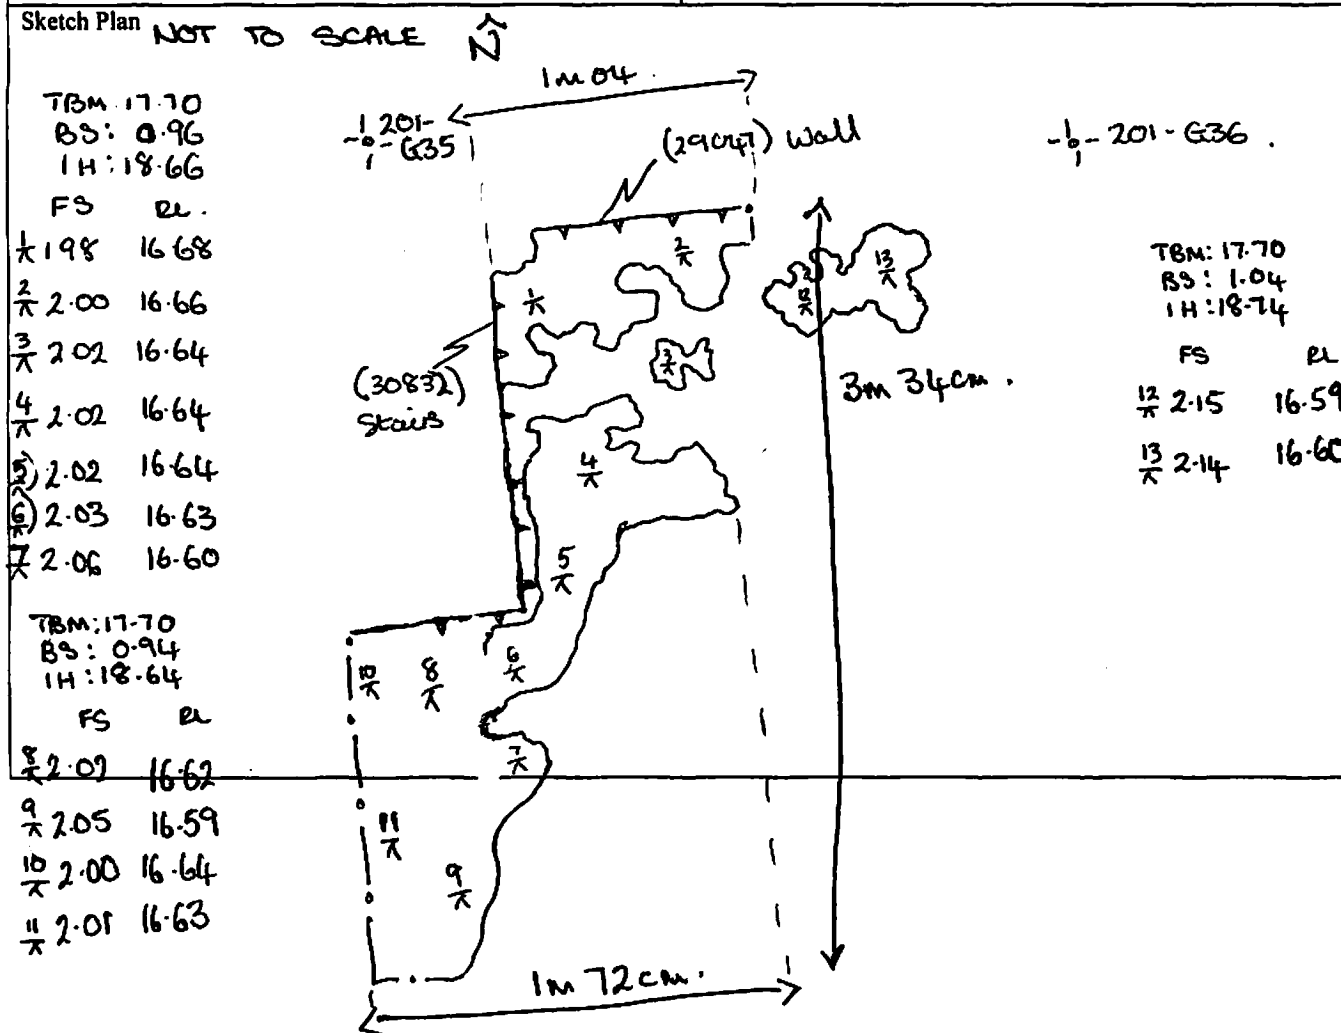 Sketch Plan NOT TO SCALE N
TBM: 17.70
BS: 0.96
IH: 18.66
FS RL.
1/⊼ 1.98 16.68
2/⊼ 2.00 16.66
3/⊼ 2.02 16.64
4/⊼ 2.02 16.64
5/⊼ 2.02 16.64
6/⊼ 2.03 16.63
7/⊼ 2.06 16.60
TBM: 17.70
BS: 0.94
IH: 18.64
FS RL
8/⊼ 2.02 16.62
9/⊼ 2.05 16.59
10/⊼ 2.00 16.64
11/⊼ 2.01 16.63
1m 04.
201-
G35
(29047) Wall
201-G36.
2/⊼
13/⊼
12/⊼
1/⊼
3/⊼
(30832)
Stairs
3m 34cm.
4/⊼
5/⊼
6/⊼
10/⊼
8/⊼
7/⊼
11/⊼
9/⊼
1m 72cm.
TBM: 17.70
BS: 1.04
IH: 18.74
FS RL
12/⊼ 2.15 16.59
13/⊼ 2.14 16.60